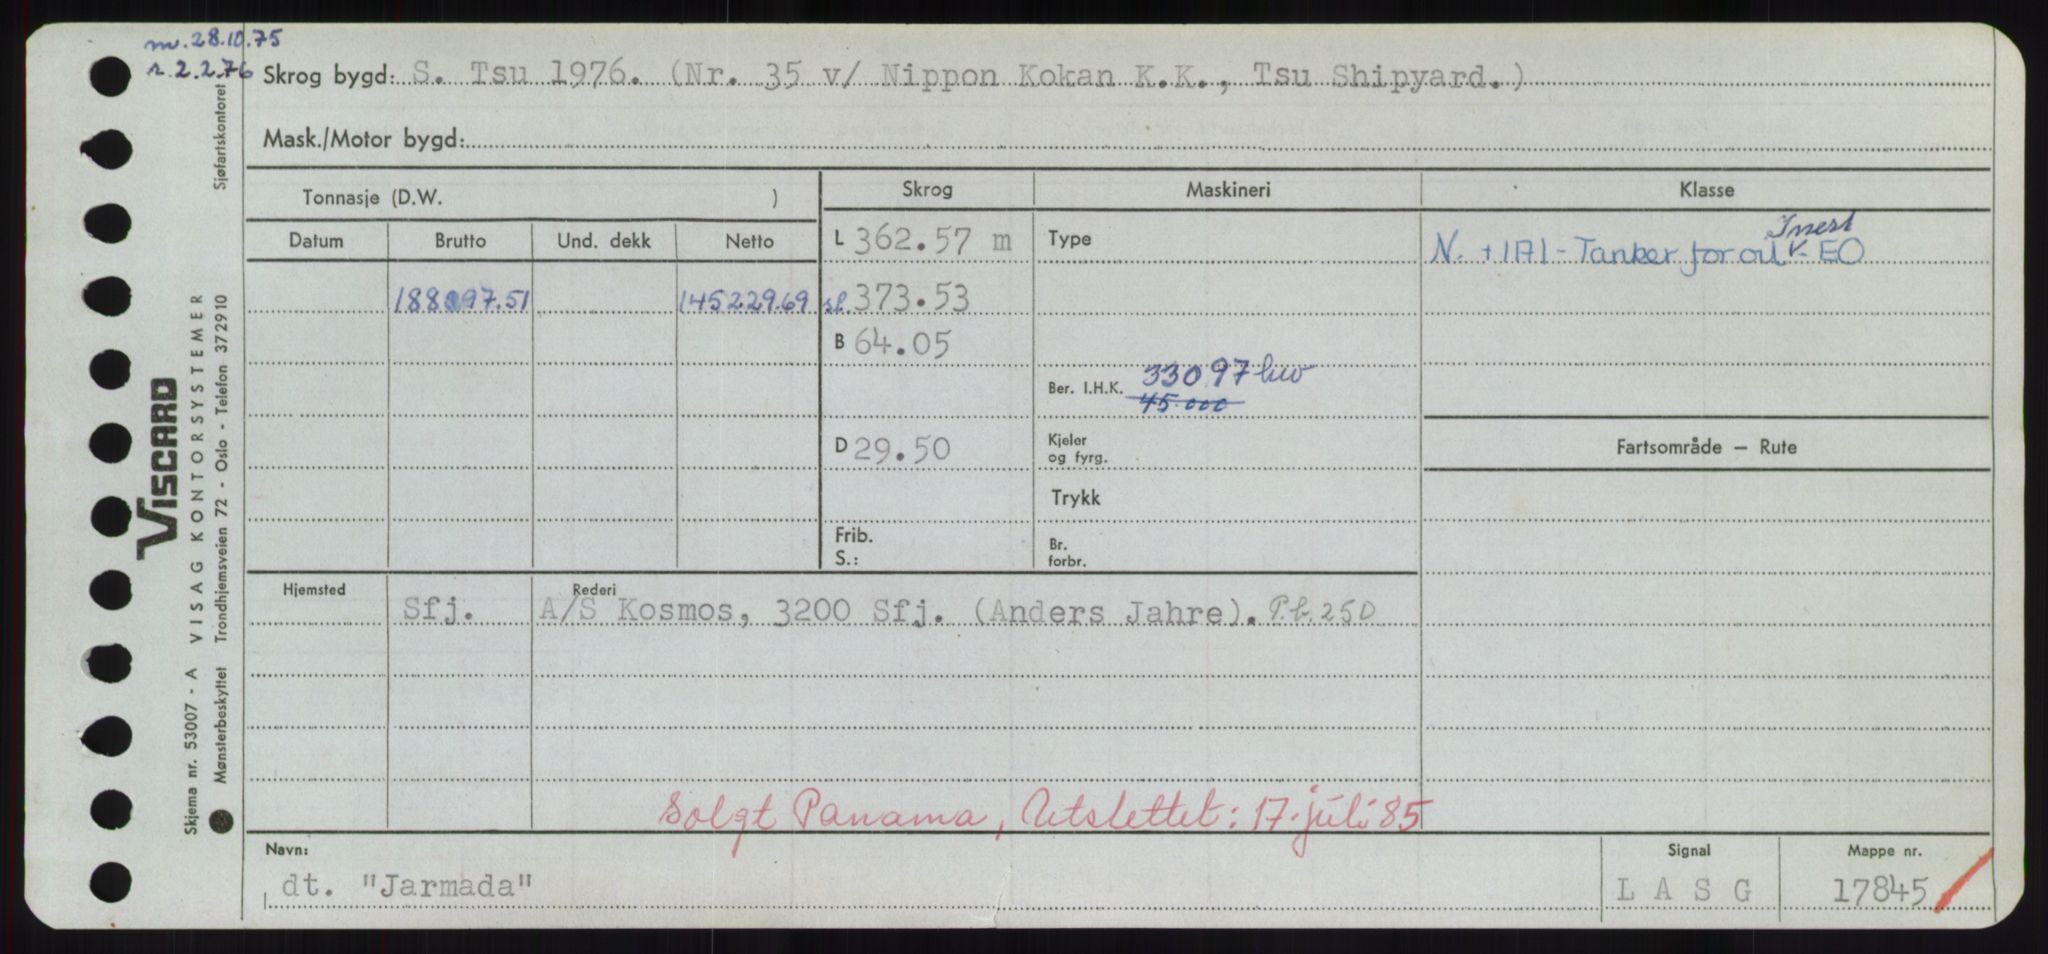 m. 28.10.75
r. 2.2.76
Skrog bygd: S. Tsu 1976. (Nr. 35 v/ Nippon Kokan K.K., Tsu Shipyard.)
Mask./Motor bygd:
Tonnasje (D.W. )
Skrog
Maskineri
Klasse
Datum
Brutto
Und. dekk
Netto
L 362.57 m
Type
Inert
N. +1A1 - Tanker for oil v - EO
188097.51
145229.69
sl. 373.53
B 64.05
Ber. I.H.K. 33097 kw
45.000
D 29.50
Kjeler
og fyrg.
Fartsområde – Rute
Trykk
Frib.
S.:
Br.
forbr.
Hjemsted
Rederi
Sfj.
A/S Kosmos, 3200 Sfj. (Anders Jahre). P.b. 250
Solgt Panama, Utslettet: 17. juli 85
Navn:
Signal
Mappe nr.
dt. "Jarmada"
L A S G
17845
VISCARD
Skjema nr. 53007 - A VISAG KONTORSYSTEMER
Mønsterbeskyttet Trondhjemsveien 72 - Oslo - Telefon 372910
Sjøfartskontoret